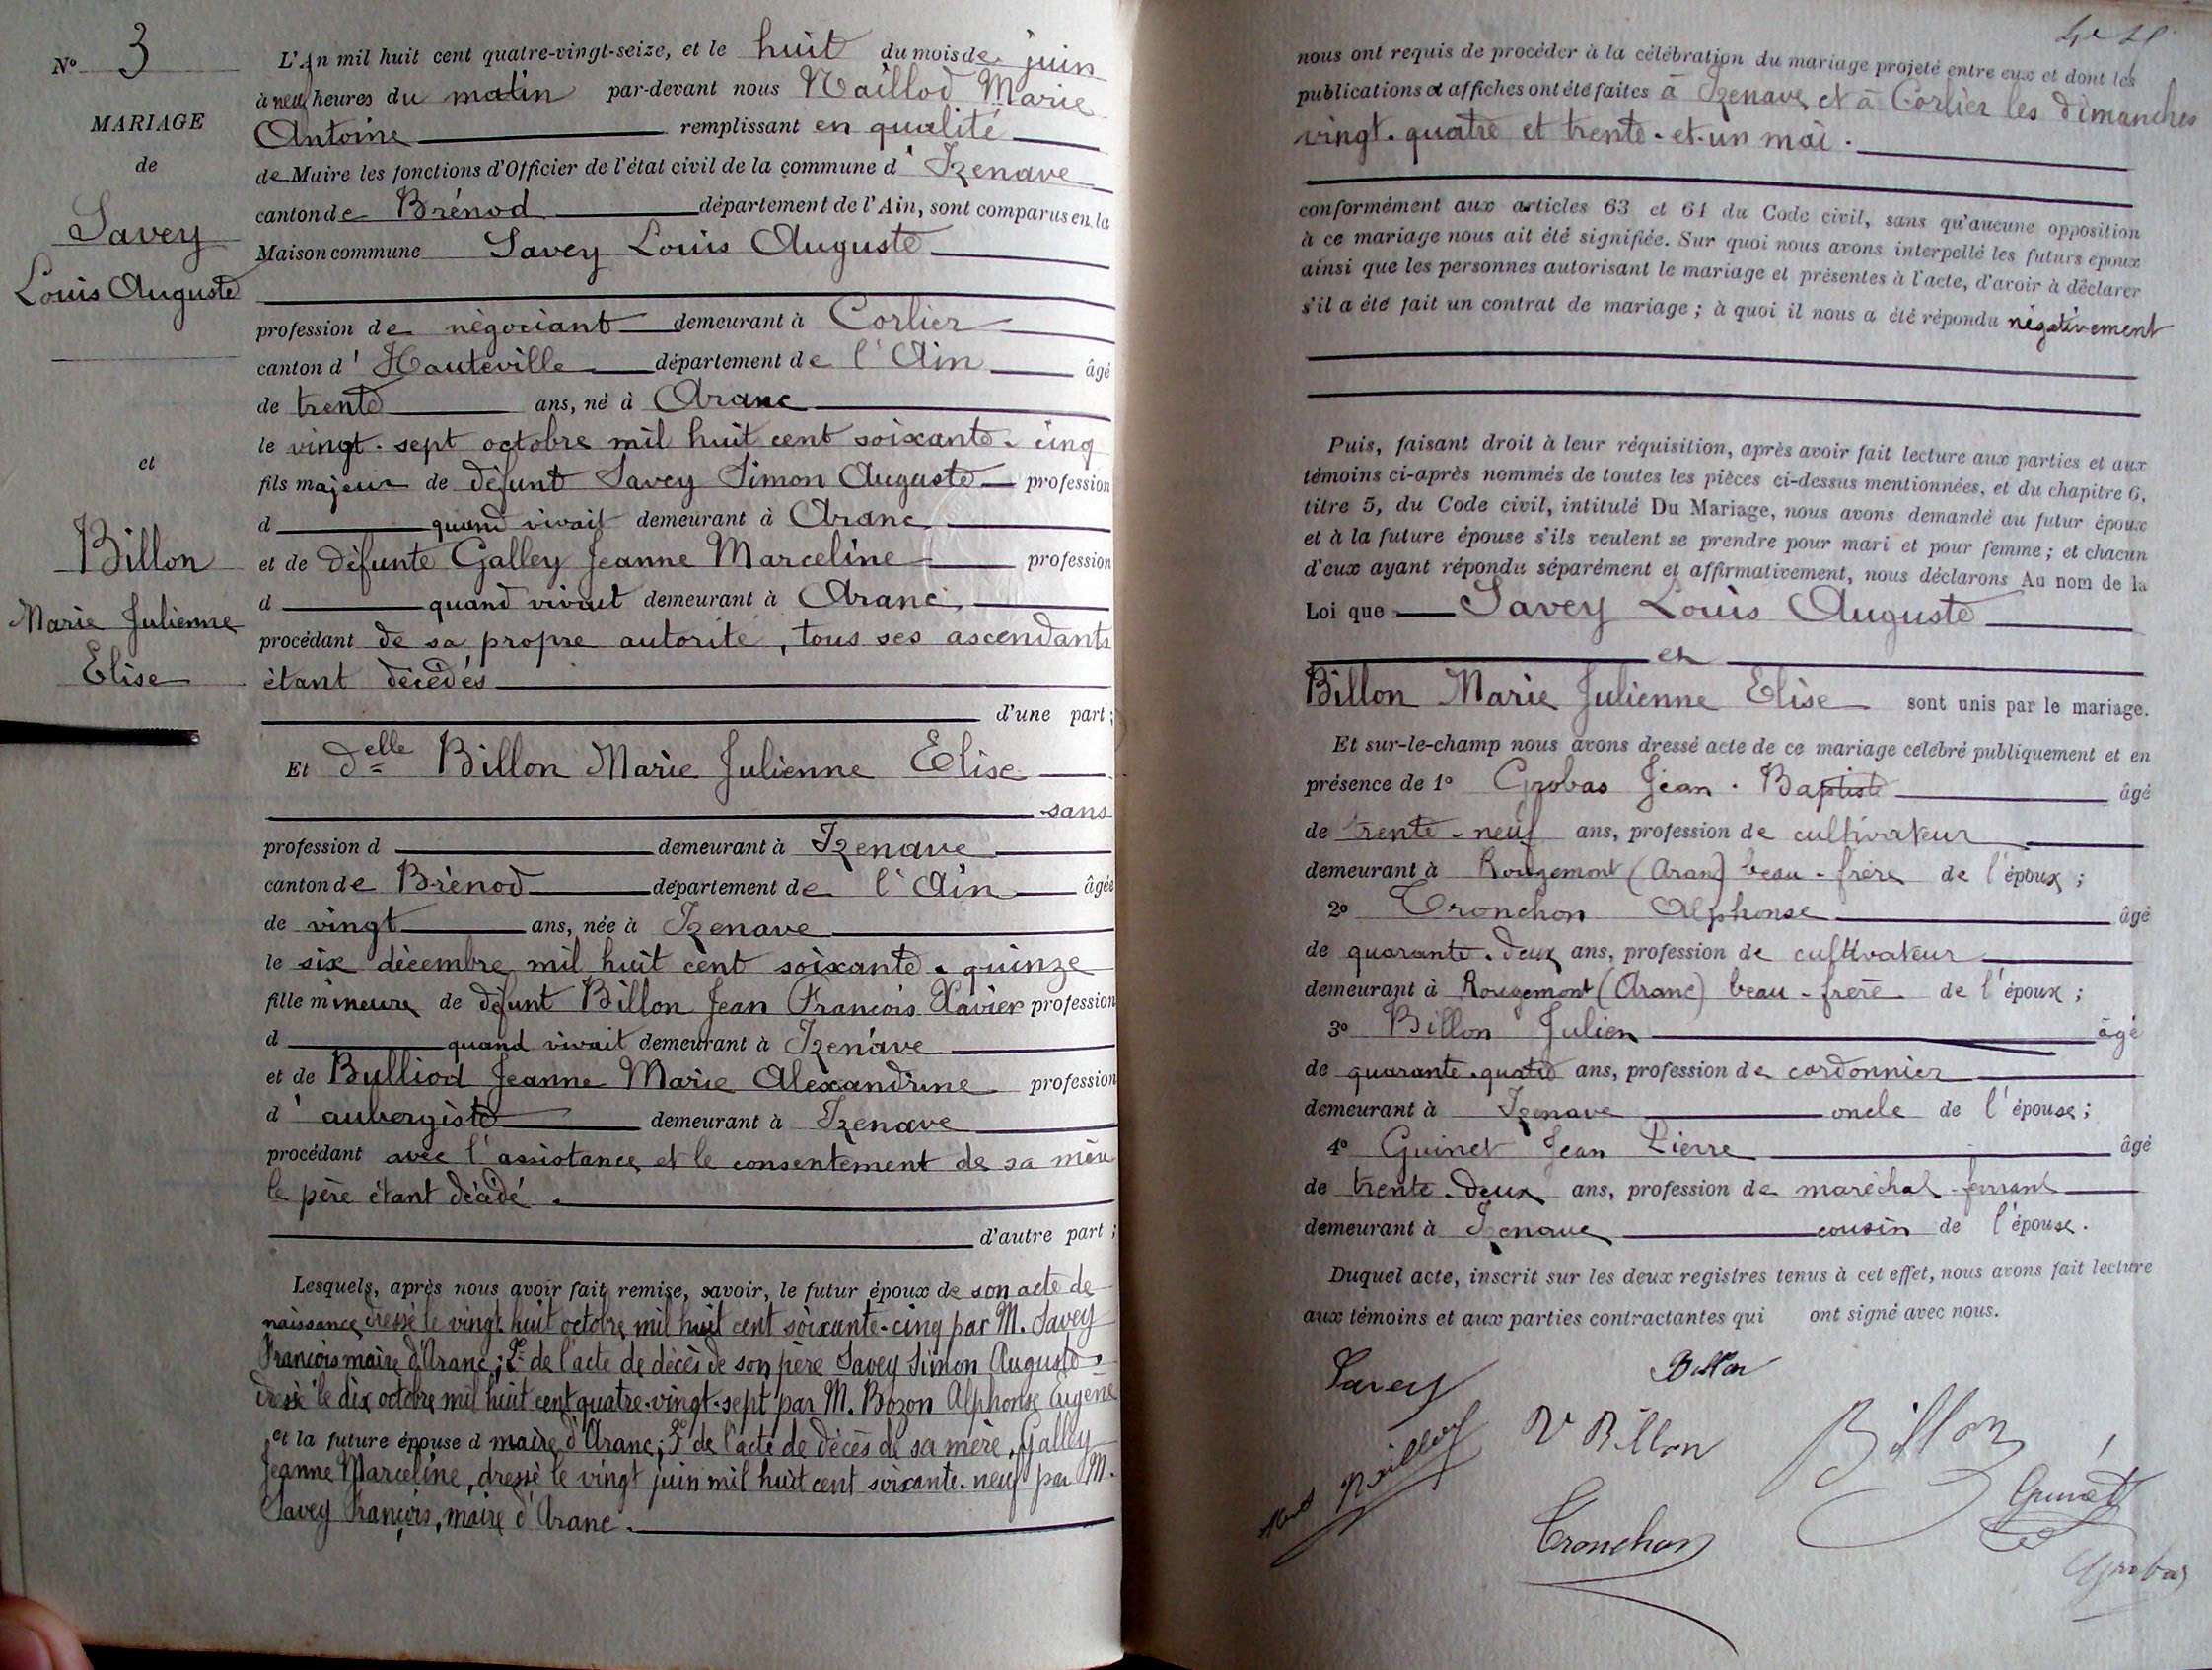 N° 3
MARIAGE
de
Savey
Louis Auguste
et
Billon
Marie Julienne
Elise
L'An mil huit cent quatre-vingt-seize, et le huit du mois de juin
à neuf heures du matin par-devant nous Maillod Marie
Antoine remplissant en qualité
de Maire les fonctions d'Officier de l'état civil de la commune d'Izenave
canton de Brénod département de l'Ain, sont comparus en la
Maison commune Savey Louis Auguste
profession de négociant demeurant à Corlier
canton d'Hauteville département de l'Ain âgé
de trente ans, né à Aranc
le vingt-sept octobre mil huit cent soixante-cinq
fils majeur de défunt Savey Simon Auguste profession
d quand vivait demeurant à Aranc
et de défunte Galley Jeanne Marceline profession
d quand vivait demeurant à Aranc
procédant de sa propre autorité, tous ses ascendants
étant décédés
d'une part;
Et delle Billon Marie Julienne Elise
sans
profession d demeurant à Izenave
canton de Brénod département de l'Ain âgée
de vingt ans, née à Izenave
le six décembre mil huit cent soixante-quinze
fille mineure de défunt Billon Jean François Xavier profession
d quand vivait demeurant à Izenave
et de Bulliod Jeanne Marie Alexandrine profession
d'aubergiste demeurant à Izenave
procédant avec l'assistance et le consentement de sa mère
le père étant décédé.
d'autre part;
Lesquels, après nous avoir fait remise, savoir, le futur époux de son acte de
naissance dressé le vingt-huit octobre mil huit cent soixante-cinq par M. Savey
François maire d'Aranc; 2° de l'acte de décès de son père Savey Simon Auguste
dressé le dix octobre mil huit cent quatre-vingt-sept par M. Bozon Alphonse Eugène
et la future épouse d maire d'Aranc; 3° de l'acte de décès de sa mère, Galley
Jeanne Marceline, dressé le vingt juin mil huit cent soixante-neuf par M.
Savey François, maire d'Aranc.
nous ont requis de procéder à la célébration du mariage projeté entre eux et dont les
publications et affiches ont été faites à Izenave et à Corlier les dimanches
vingt-quatre et trente-et-un mai.
conformément aux articles 63 et 64 du Code civil, sans qu'aucune opposition
à ce mariage nous ait été signifiée. Sur quoi nous avons interpellé les futurs époux
ainsi que les personnes autorisant le mariage et présentes à l'acte, d'avoir à déclarer
s'il a été fait un contrat de mariage; à quoi il nous a été répondu négativement
Puis, faisant droit à leur réquisition, après avoir fait lecture aux parties et aux
témoins ci-après nommés de toutes les pièces ci-dessus mentionnées, et du chapitre 6,
titre 5, du Code civil, intitulé Du Mariage, nous avons demandé au futur époux
et à la future épouse s'ils veulent se prendre pour mari et pour femme; et chacun
d'eux ayant répondu séparément et affirmativement, nous déclarons Au nom de la
Loi que Savey Louis Auguste
et
Billon Marie Julienne Elise sont unis par le mariage.
Et sur-le-champ nous avons dressé acte de ce mariage célébré publiquement et en
présence de 1° Grobas Jean-Baptiste âgé
de trente-neuf ans, profession de cultivateur
demeurant à Rougemont (Aranc) beau-frère de l'époux;
2° Tronchon Alphonse âgé
de quarante-deux ans, profession de cultivateur
demeurant à Rougemont (Aranc) beau-frère de l'époux;
3° Billon Julien âgé
de quarante-quatre ans, profession de cordonnier
demeurant à Izenave oncle de l'épouse;
4° Guinet Jean Pierre âgé
de trente-deux ans, profession de maréchal-ferrant
demeurant à Izenave cousin de l'épouse.
Duquel acte, inscrit sur les deux registres tenus à cet effet, nous avons fait lecture
aux témoins et aux parties contractantes qui ont signé avec nous.
Savey Billon
Maillod Ve Billon Billon
Tronchon Guinet
Grobas